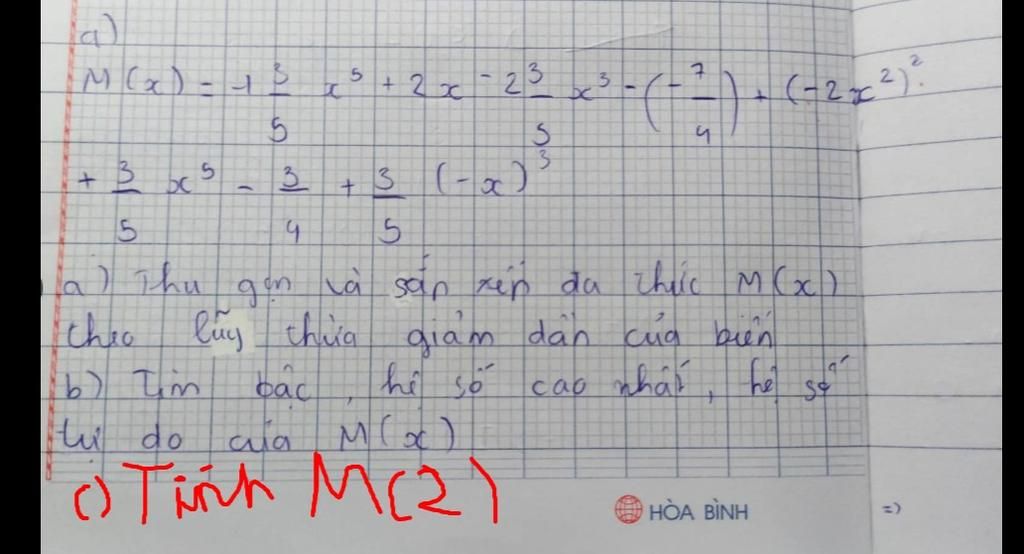 a)
M(x) = -1 3/5 x⁵ + 2x - 2 3/5 x³ - (-7/4) + (-2x²)².
+ 3/5 x⁵ - 3/4 + 3/5 (-x)³
a) Thu gọn và sắp xếp đa thức M(x)
theo lũy thừa giảm dần của biến
b) Tìm bậc, hệ số cao nhất, hệ số
tự do của M(x)
c) Tính M(2)
HÒA BÌNH
=)